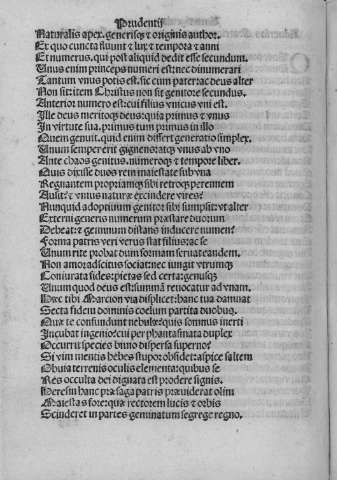 Prudentii
Naturalis apex. generisq; & originis author.
Ex quo cuncta fluunt & lux & tempora & anni
Et numerus. qui post aliquid dedit esse secundum.
Vnus enim princeps numeri est: nec dinumerari
Tantum vnus potis est. sic cum pater: ac deus alter
Non sit: item Christus non sit genitore secundus.
Anterior numero est: cui filius vnicus vni est.
Ille deus meritoq; deus: quia primus & vnus
In virtute sua. primus tum primus in illo
Quem genuit. quid enim differt generatio simplex.
Vnum semper erit gignens: atq; vnus ab vno
Ante chaos genitus. numeroq; & tempore liber.
Quis dixisse duos rem maiestate sub vna
Regnantem propriamq; sibi retroq; perennem
Ausit: & vnius naturæ excindere vires?
Nunquid adoptiuum genitor sibi sumpsit: vt alter
Externi generis numerum præstare duorum
Debeat: & geminum distans inducere numen?
Forma patris veri verus stat filius: ac se
Vnum rite probat dum formam seruat eandem.
Non amor adscitus sociat: nec iungit vtrumq;
Coniurata fides: pietas sed certa: genusq;
Vnum quod deus est: summam reuocatur ad vnam.
Hæc tibi Marcion via displicet: hanc tua damnat
Secta fidem dominis coelum partita duobus.
Quæ te confundunt nebulæ: quis somnus inerti
Incubat ingenio: cui per phantasmata duplex
Occurrit species bino dispersa superno?
Si vim mentis hebes stupor obsidet: aspice saltem
Obuia terrenis oculis elementa: quibus se
Res occulta dei dignata est prodere signis.
Heresim hanc præsaga patris præuiderat olim
Maiestas fore: quæ rectorem lucis & orbis
Scinderet in partes geminatum segrege regno.